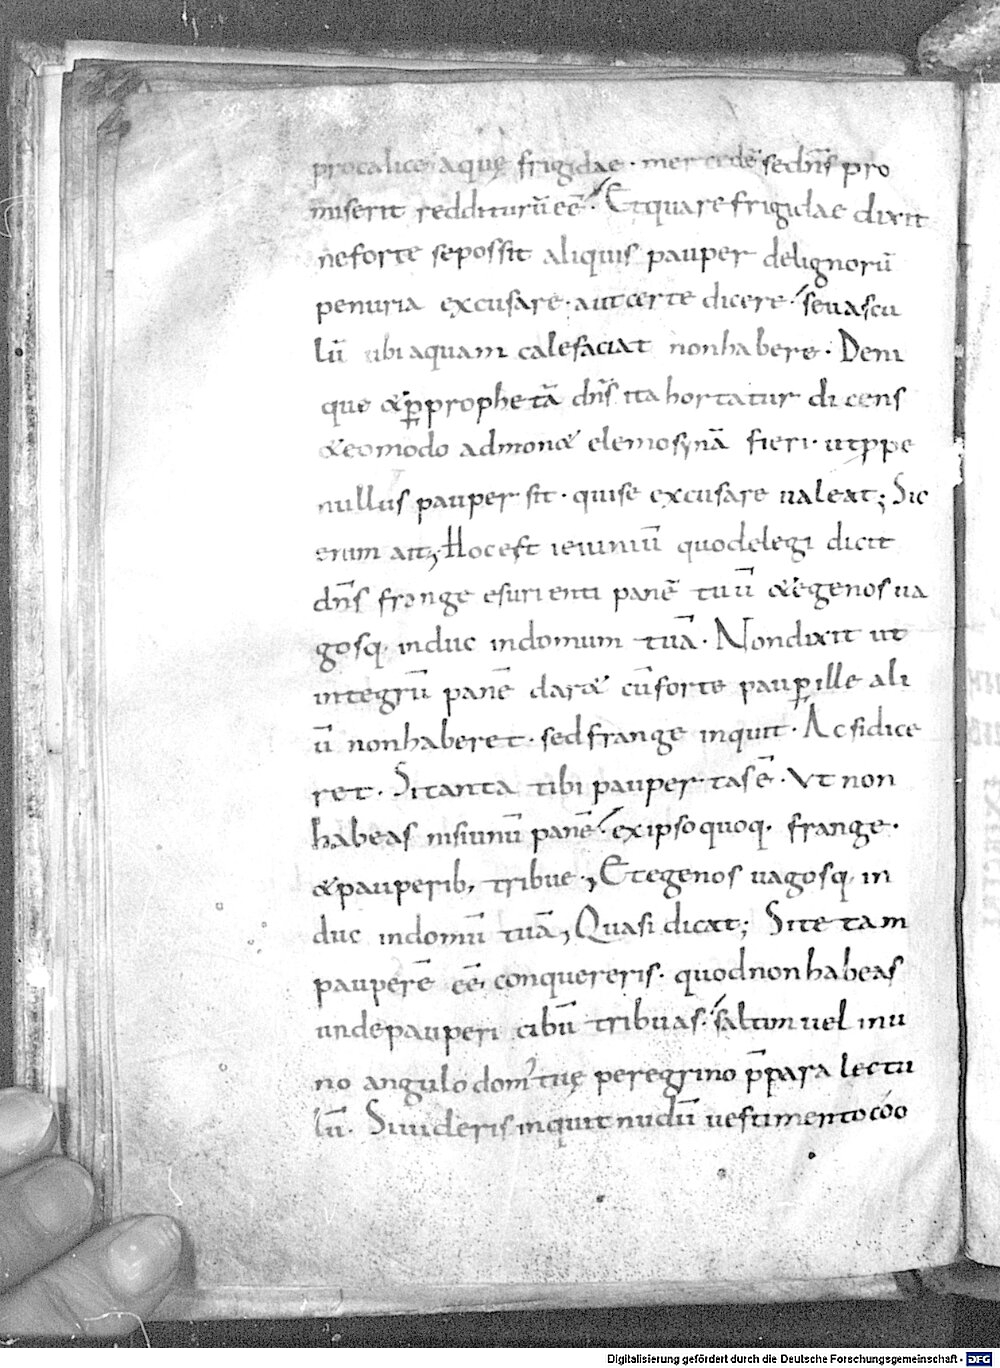 procalice aquę frigidae · mercedē sed dn̄s pro
miserit redditurū eē · Et quare frigidae dixit
ne forte se possit aliquis pauper de lignorū
penuria excusare · aut certe dicere · se uascu
lū ubi aquam calefaciat non habere · Deni
que & ꝑ prophetā dn̄s ita hortatur dicens
& eo modo admon& elemosynā fieri · ut ꝓpe
nullus pauper sit · qui se excusare ualeat; Sic
enim ait, Hoc est ieiuniū quod elegi dicit
dn̄s frange esurienti panē tuū & egenos ua
gosq· induc in domum tuā · Non dixit ut
integrū panē dar& cū forte pauꝑ ille ali
ū non haberet · sed frange inquit · Ac si dice
ret · Si tanta tibi paupertas ē · Ut non
habeas nisi unū panē · ex ipso quoq· frange ·
& pauperib, tribue ·, Et egenos uagosq· in
duc in domū tuā, Quasi dicat; Si te tam
pauperē eē conquereris · quod non habeas
unde pauperi cibū tribuas · saltim uel in u
no angulo dom' tuę peregrino p̄para lectu
lū · Si uideris inquit nudū uestimento coo
Digitalisierung gefördert durch die Deutsche Forschungsgemeinschaft - DFG